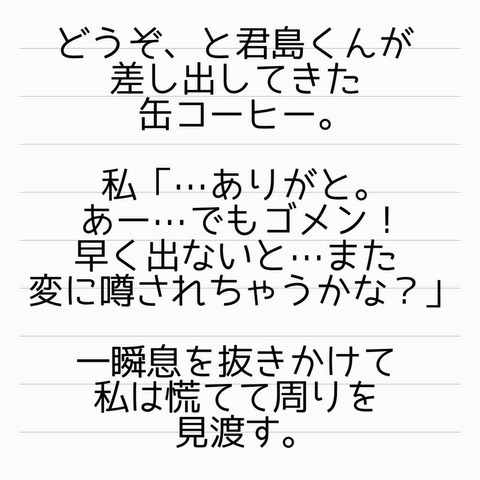 どうぞ、と君島くんが
差し出してきた
缶コーヒー。
私「…ありがと。
あー…でもゴメン！
早く出ないと…また
変に噂されちゃうかな？」
一瞬息を抜きかけて
私は慌てて周りを
見渡す。